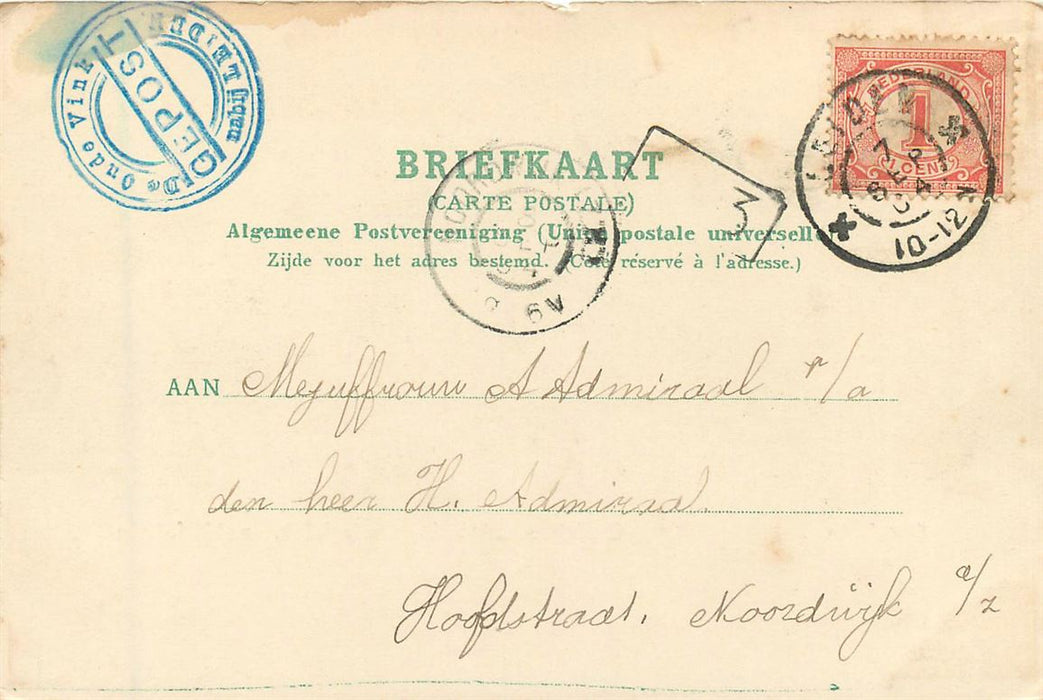 De Oude Vink
LEIDEN
GEPOST
NEDERLAND
1
CENT
LEIDEN
7 SEP 04
10-12 N
BRIEFKAART
(CARTE POSTALE)
Algemeene Postvereeniging (Union postale universelle)
Zijde voor het adres bestemd. (Côté réservé à l'adresse.)
3
NOORD
6V
AAN Mejuffrouw A Admiraal p/a
den heer H. Admiraal.
Hoofdstraat. Noordwijk a/z